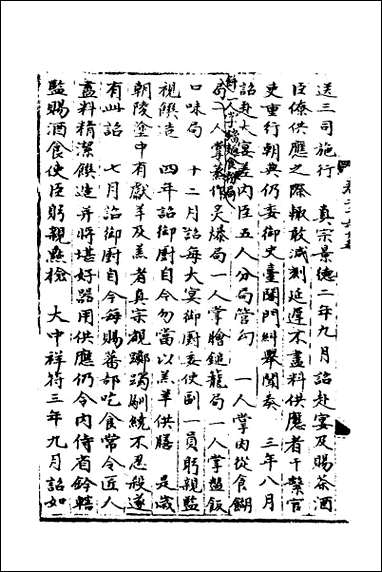 送三司施行 真宗景德二年九月詔赴宴及賜茶酒
臣僚供應之際輒敢減刻延遲不盡料供應者干繫官
吏重行朝典仍委御史臺閤門糾舉聞奏 三年八月
詔赴大宴差內臣五人分局管勾 一人掌肉從食餬
餅一人
局一人掌蒸作炙爆局一人掌膾鎚龍局一人掌盤飯
口味局 十二月詔每大宴御厨委使副一員躬親監
視饌造 四年詔御厨自今勿當以羔羊供膳 是歲
朝陵塗中有獻羊及羔者真宗覩躑躅馴繞不忍殺遂
有此詔 七月詔御厨自今每賜蕃部吃食常令匠人
盡料精潔饌造并將堪好器用供應仍令內侍省鈐轄
監賜酒食使臣躬親點檢 大中祥符三年九月詔如